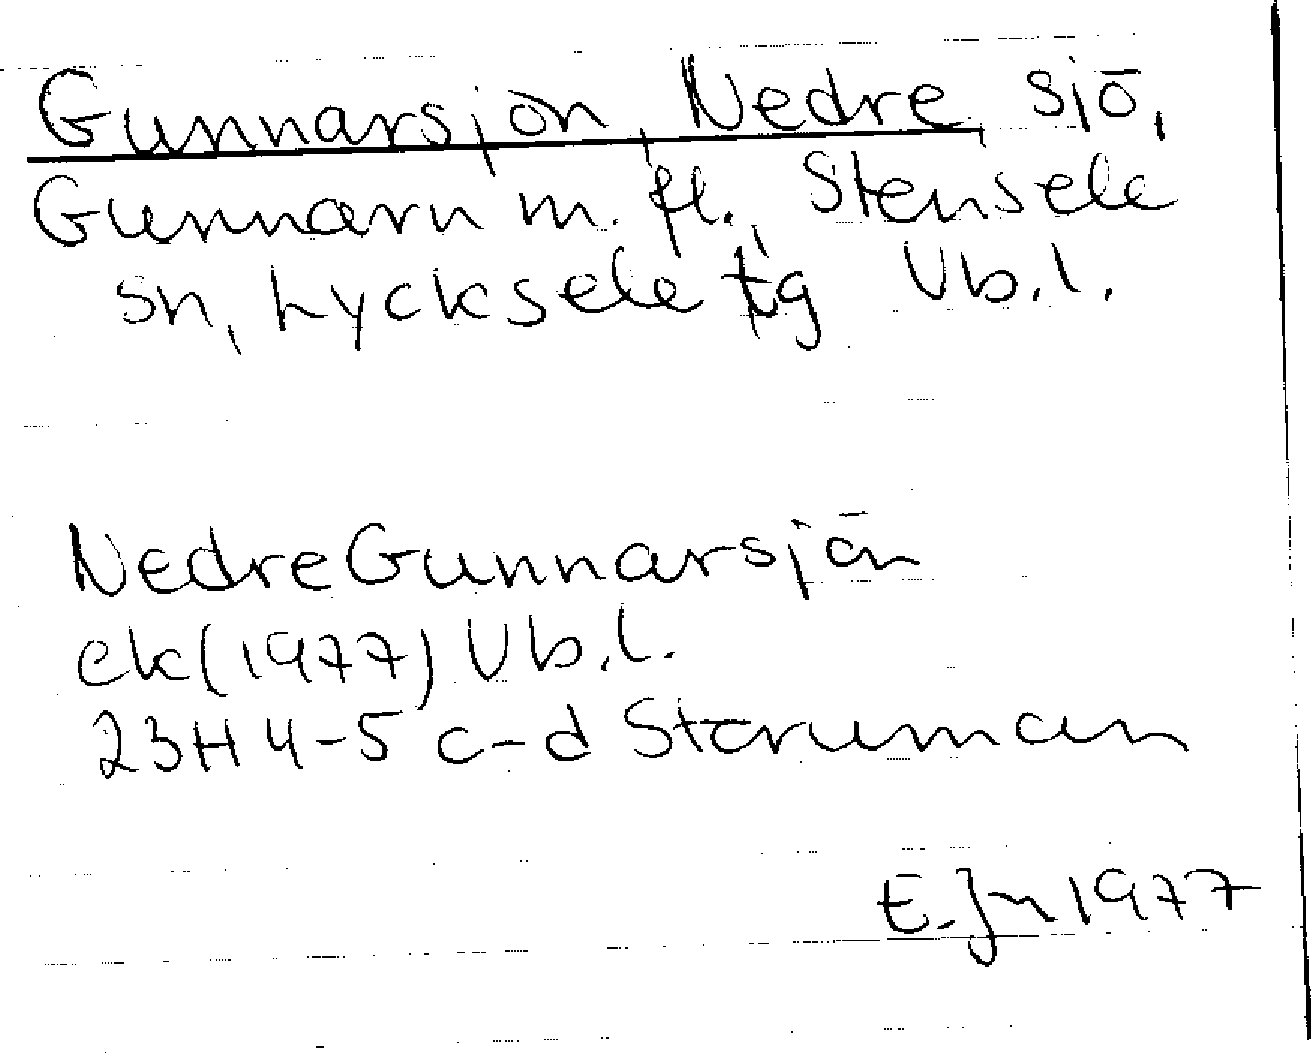 Gunnarsjön, Nedre, sjö,
Gunnarn m.fl., Stensele
sn, Lycksele tg Vb.l.
Nedre Gunnarsjön
ek(1977) Vb.l.
23H 4-5 c-d Storuman
E.Jn 1977